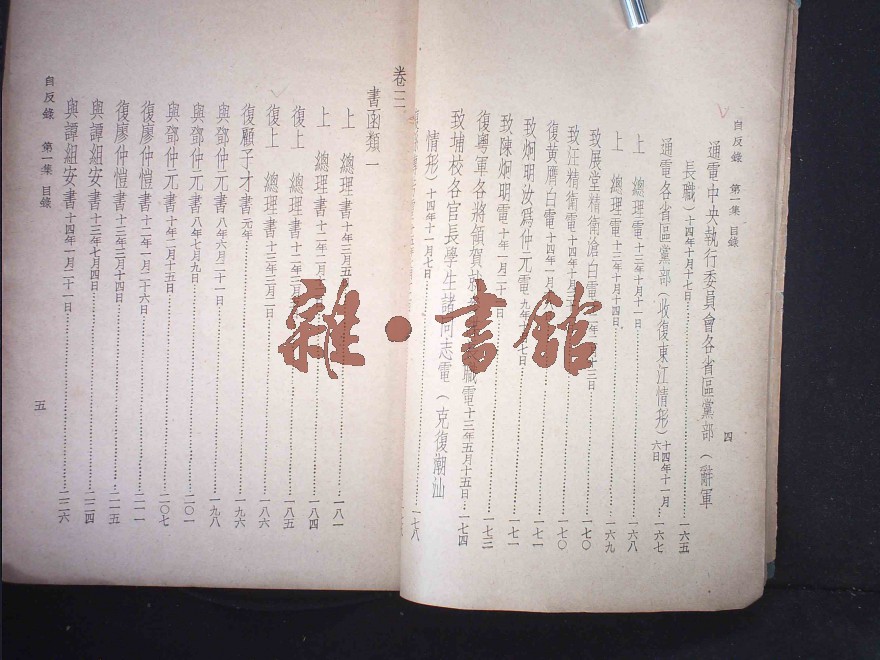 自反錄 第一集 目錄
四
通電中央執行委員會各省區黨部（辭軍
長職）十四年十月十七日 一六五
通電各省區黨部（收復東江情形）十四年十一月六日 一六七
上 總理電 十三年十月十一日 一六八
上 總理電 十三年十月十四日 一六九
致展堂精衛滄白電 一七〇
致汪精衛電 十四年十月 一七〇
復黃膺白電 十四年一月 一七一
致炯明汝為仲元電 九年 七日 一七一
致陳炯明電 十年一月二十 日 一七二
復粵軍各將領賀 職電 十三年五月十五日 一七四
致埔校各官長學生諸同志電（克復潮汕
情形）十四年十一月七日 一七八
卷三
書函類一
上 總理書 十年三月五 一八一
上 總理書 十二年 一八四
復上 總理書 十二年二月 一八五
復上 總理書 十三年三月二日 一八六
復顧子才書 元年 一九六
與鄧仲元書 八年六月二十一日 一九八
與鄧仲元書 八年七月九日 二〇一
與鄧仲元書 十年二月十五日 二〇七
復廖仲愷書 十二年一月二十六日 二一一
復廖仲愷書 十三年三月十四日 二一五
與譚組安書 十三年七月四日 二二四
與譚組安書 十四年一月二十一日 二二六
自反錄 第一集 目錄
五
雜·書館